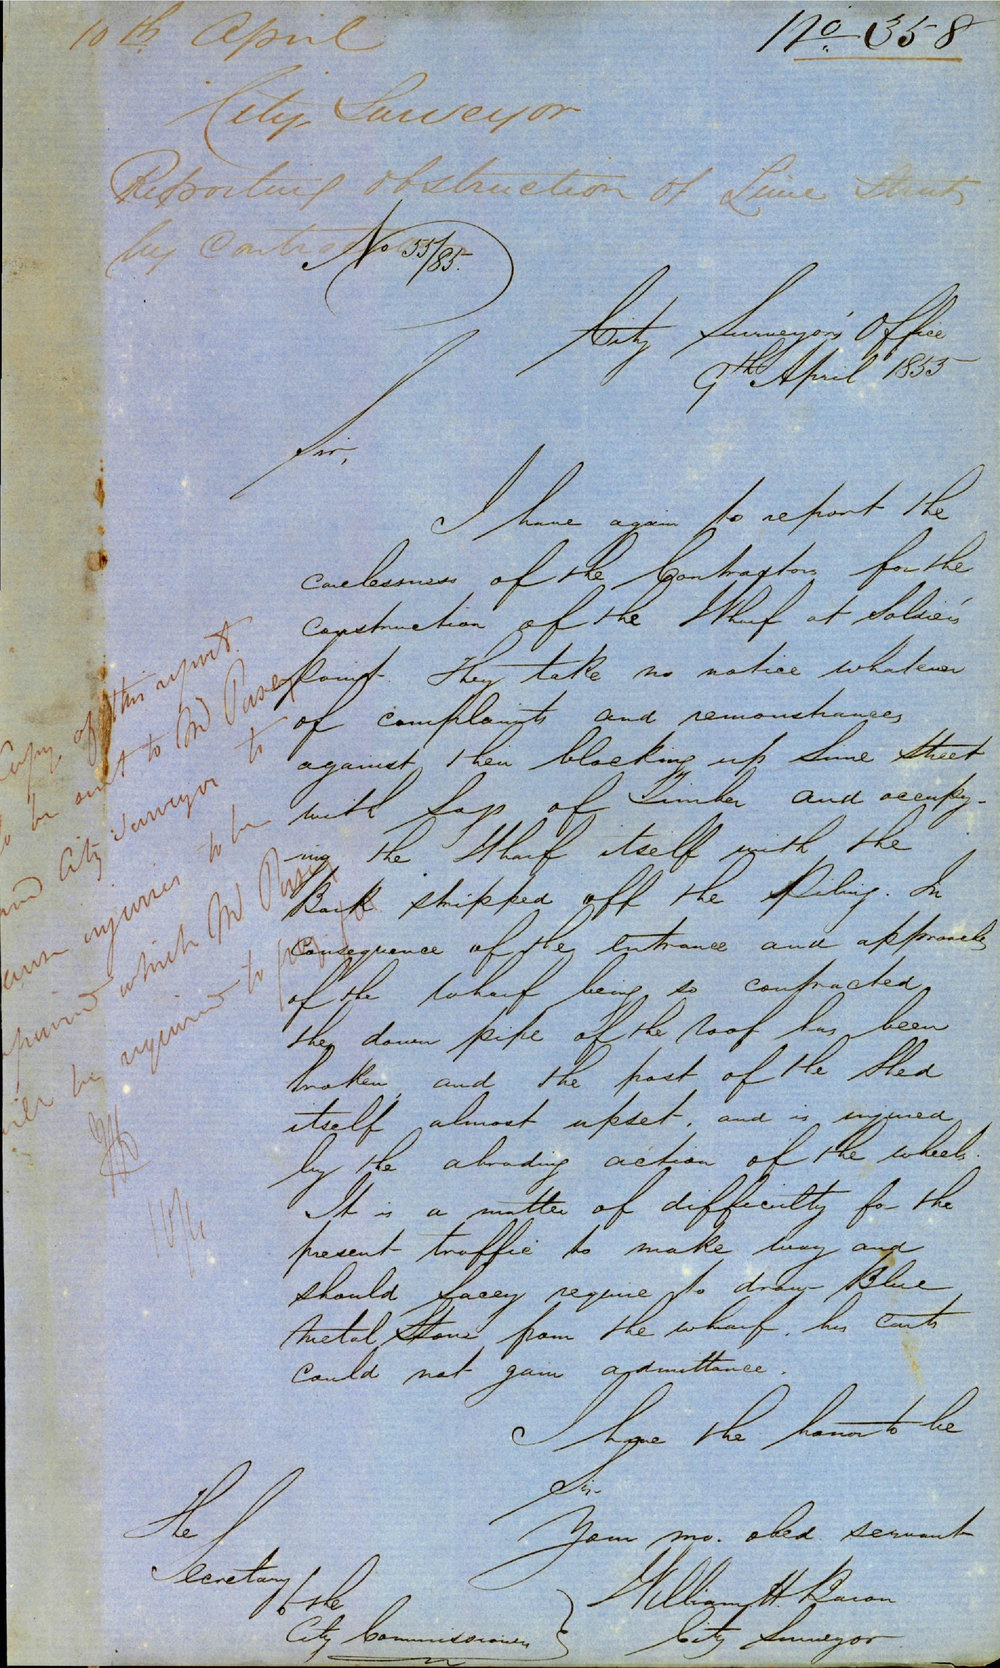 10th April
No. 358
City Surveyor
Reporting obstruction of Lime Street
by Contractors
No 55/85.
City Surveyor's Office
9th April 1855
Sir,
I have again to report the
carelessness of the Contractors for the
construction of the Wharf at Soldier's
Point. They take no notice whatever
of complaints and remonstrances
against their blocking up Lime Street
with Logs of Timber and occupy-
ing the Wharf itself with the
Bark stripped off the Piling. In
consequence of the entrance and approaches
of the wharf being so contracted
the down pipe of the roof has been
broken, and the post of the Shed
itself almost upset, and is injured
by the abrading action of the wheels.
It is a matter of difficulty for the
present traffic to make way and
should Lacey require to draw Blue
Metal Stone from the wharf, his carts
could not gain admittance.
I have the honor to be
Sir
Your mo. obed. servant
William H. Baron
City Surveyor
The
Secretary
to the
City Commissioners
Copy of this report
to be sent to Mr Pusey
and City Surveyor to
cause injuries to be
repaired which Mr Pusey
will be required to pay for
10/4